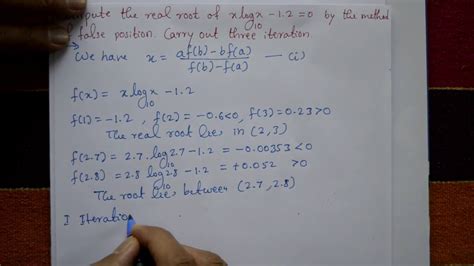 Compute the real root of x log₁₀x - 1.2 = 0 by the method
of false position. Carry out three iteration.
→ We have x = (af(b) - bf(a)) / (f(b) - f(a)) — (i)
f(x) = x log₁₀x - 1.2
f(1) = -1.2, f(2) = -0.6<0, f(3) = 0.23>0
The real root lies in (2,3)
f(2.7) = 2.7 log₁₀2.7 - 1.2 = -0.00353<0
f(2.8) = 2.8 log₁₀2.8 - 1.2 = +0.052 >0
The root lies between (2.7, 2.8)
I Iteratio